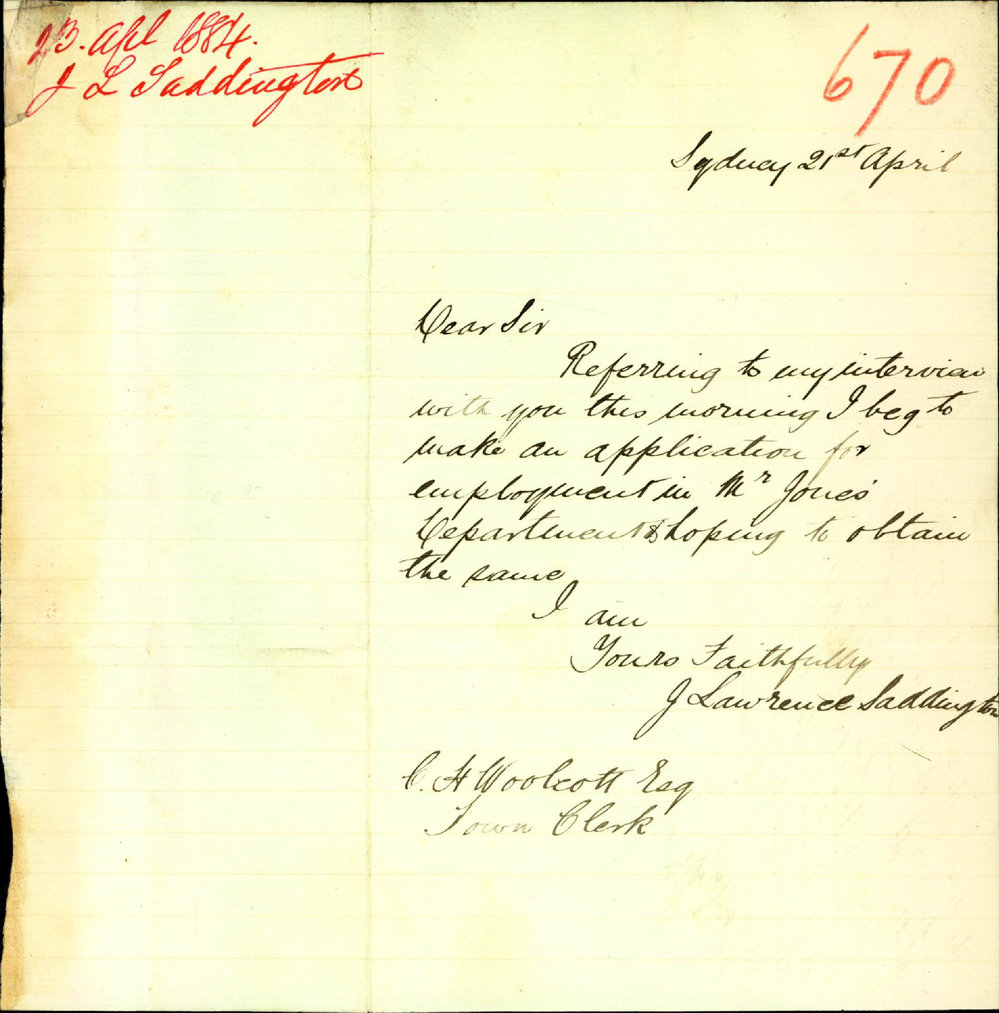 23. Apl 1884.
J L Saddington
670
Sydney 21st April
Dear Sir
Referring to my interview
with you this morning I beg to
make an application for
employment in Mr Jones'
Department & hoping to obtain
the same
I am
Yours Faithfully
J Lawrence Saddington
C. H Woolcott Esq
Town Clerk